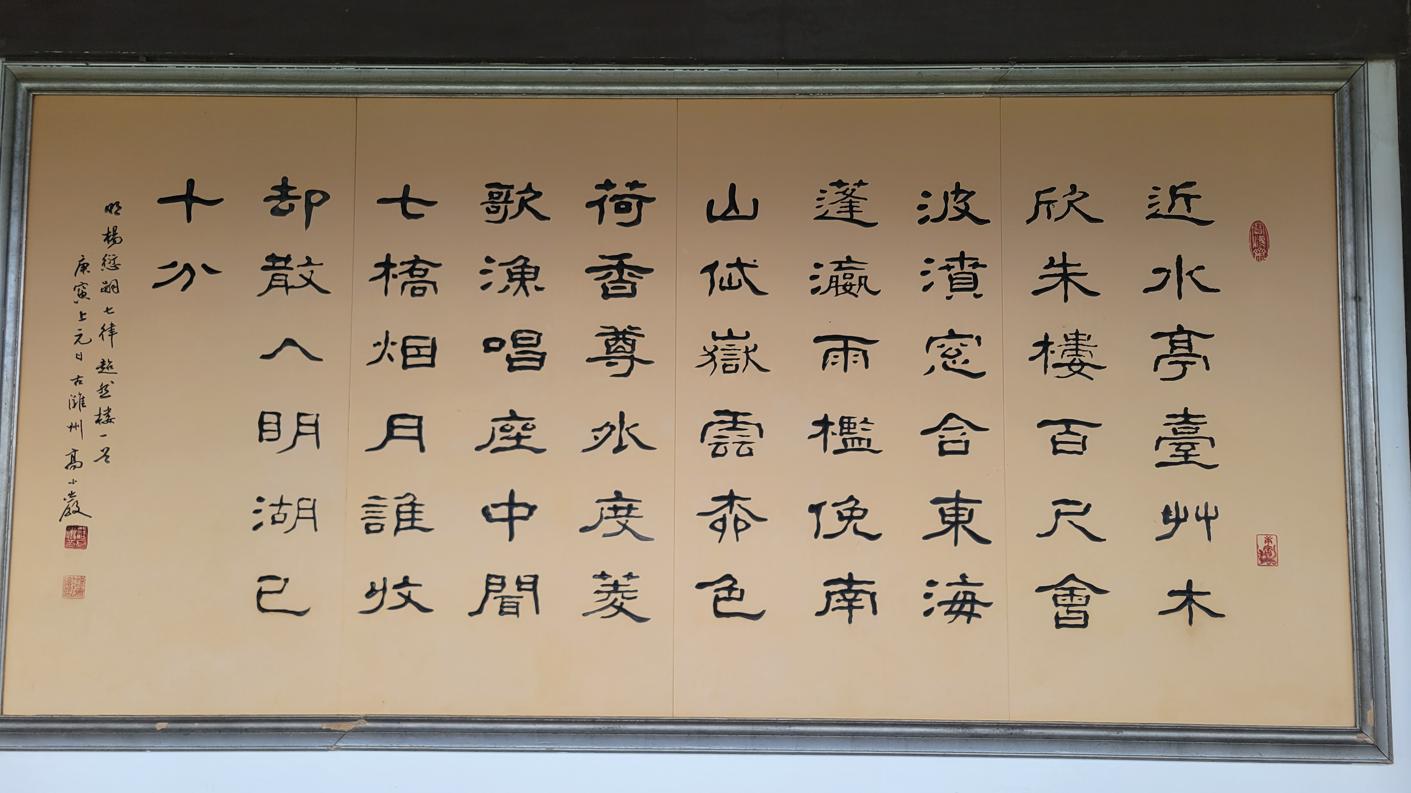 近水亭臺艸木
欣朱樓百尺會
波濆窓含東海
蓬瀛雨檻俛南
山岱嶽雲夰色
荷香尊外度菱
歌漁唱座中聞
七橋烟月誰收
却散入明湖已
十分
明楊繼嗣七律超然樓一首
庚寅上元日古濰州高小巖